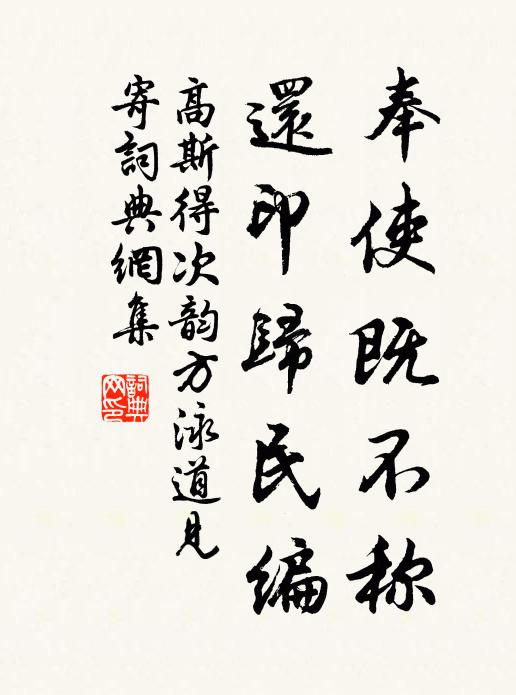 奉使既不称
還印歸民編
高斯得次韵方泳道見
寄詞典網集
詞典网印